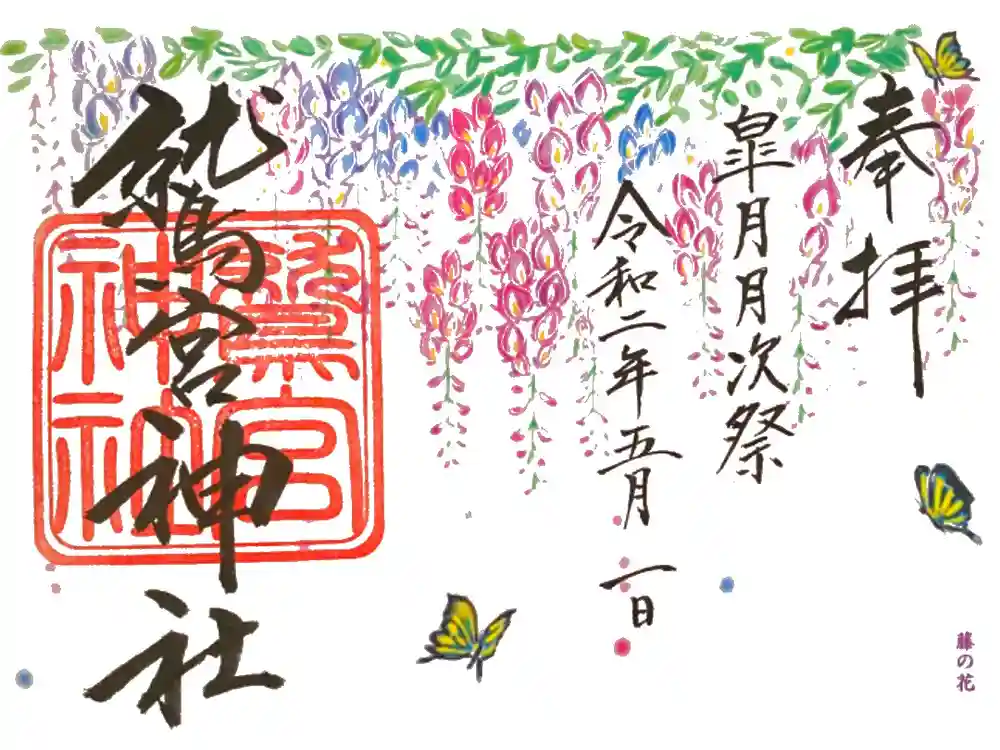 奉拝
皐月月次祭
令和二年五月一日
鷲宮神社
鷲宮
神社
藤の花